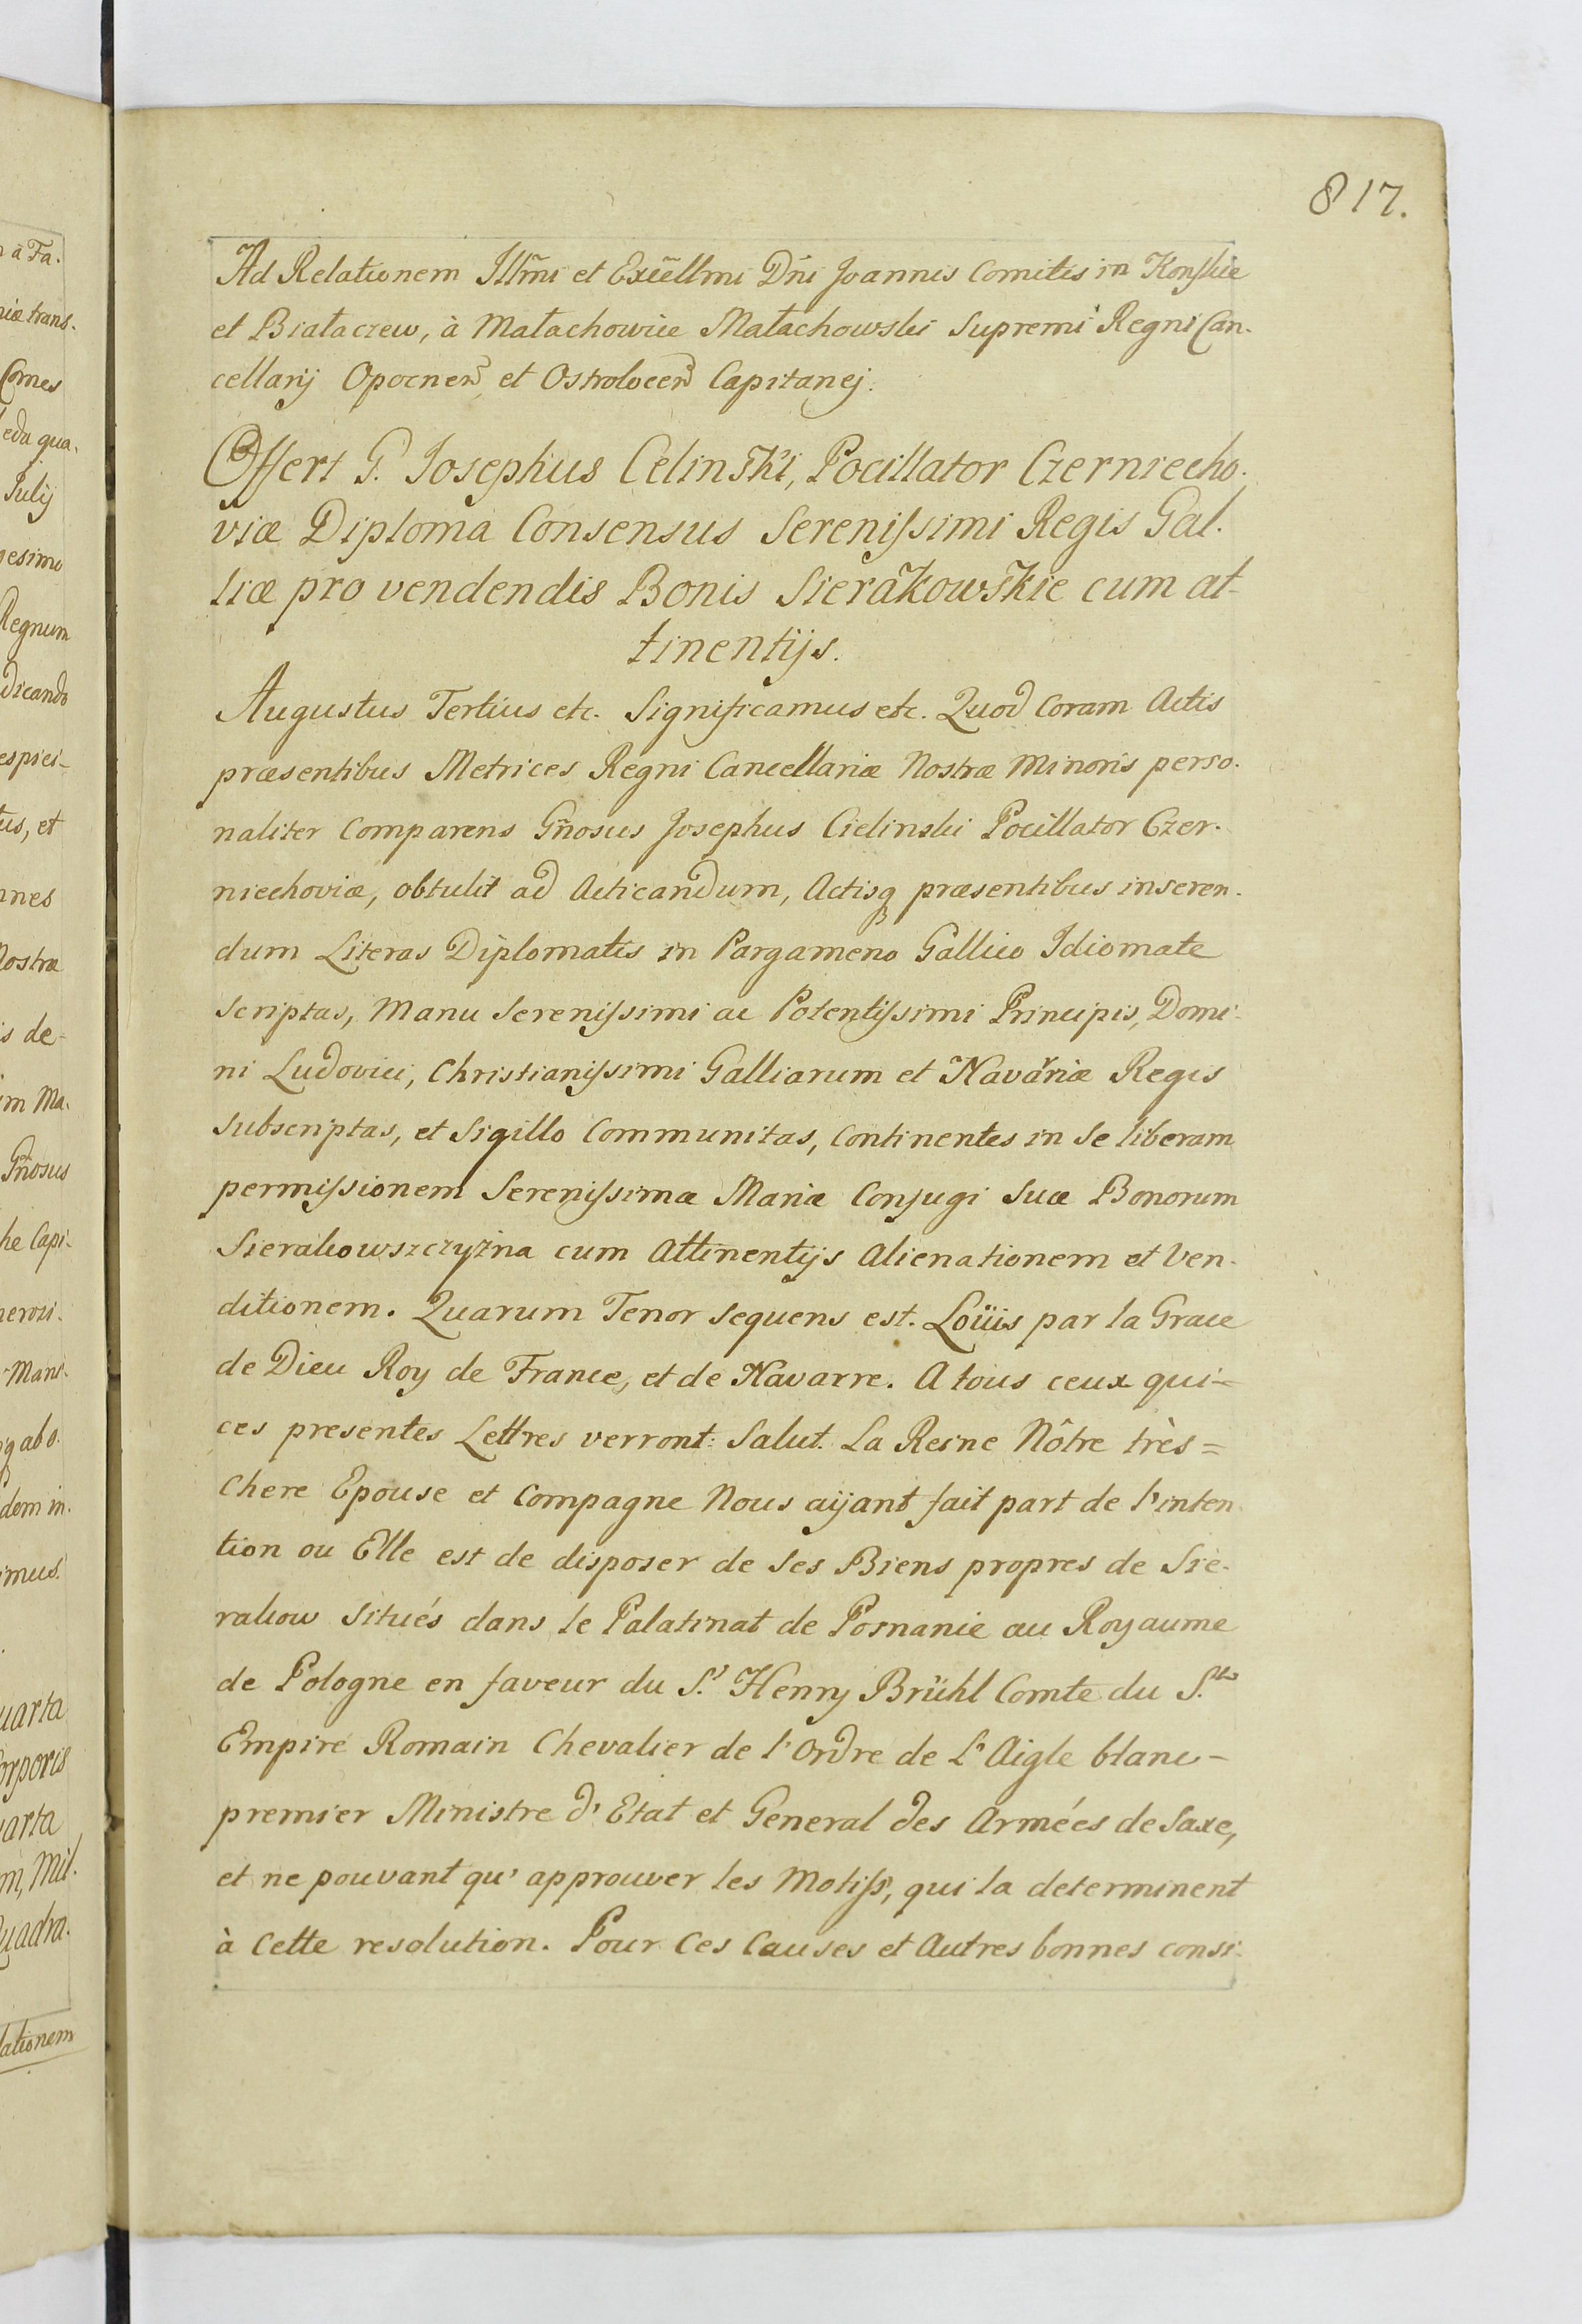 817.
Ad Relationem Illm̃i et Excellm̃i Dñi Joannis Comitis in Konskie
et Białaczew, à Małachowice Małachowski Supremi Regni Can-
cellarij Opocnen̄, et Ostrolecen̄ Capitanej.
Offert G. Josephus Celinski, Pocillator Czerniecho-
viæ Diploma Consensus Serenissimi Regis Gal-
liæ pro vendendis Bonis Sierakowskie cum at-
tinentijs.
Augustus Tertius etc. Significamus etc. Quod Coram Actis
præsentibus Metrices Regni Cancellariæ Nostræ Minoris perso-
naliter Comparens Gñosus Josephus Cielinski Pocillator Czer-
niechoviæ, obtulit ad Acticandum, Actisq præsentibus inseren-
dum Literas Diplomatis in Pargameno Gallico Idiomate
scriptas, Manu Serenissimi ac Potentissimi Principis, Domi-
ni Ludovici, Christianissimi Galliarum et Navariæ Regis
subscriptas, et Sigillo Communitas, Continentes in se liberam
permissionem Serenissimæ Mariæ Conjugi Suæ Bonorum
Sierakowszczyzna cum Attinentijs Alienationem et Ven-
ditionem. Quarum Tenor sequens est. Loüis par la Grace
de Dieu Roy de France, et de Navarre. A tous ceux qui=
ces presentes Lettres verront: Salut. La Reine Nôtre très=
Chere Epouse et Compagne Nous aijant fait part de l'inten-
tion ou Elle est de disposer de ses Biens propres de Sie-
rakow situés dans le Palatinat de Posnanie au Royaume
de Pologne en faveur du S.r Henry Brühl Comte du S.t
Empire Romain Chevalier de l'Ordre de L'Aigle blanc-
premier Ministre d'Etat et General des Armées de Saxe,
et ne pouvant qu'approuver les Motifs, qui la determinent
à Cette resolution. Pour Ces Causes et Autres bonnes consi-